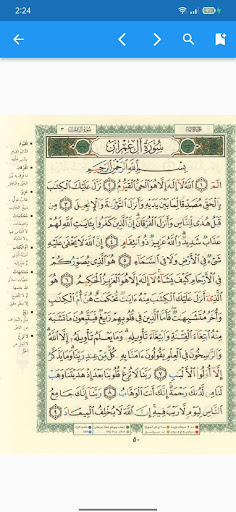 2:24
سُورَةُ آلِ عِمْرَان
بِسْمِ اللَّهِ الرَّحْمَٰنِ الرَّحِيمِ
الٓمٓ ١ اللَّهُ لَا إِلَٰهَ إِلَّا هُوَ الْحَيُّ الْقَيُّومُ ٢ نَزَّلَ عَلَيْكَ الْكِتَٰبَ
بِالْحَقِّ مُصَدِّقًا لِّمَا بَيْنَ يَدَيْهِ وَأَنزَلَ التَّوْرَىٰةَ وَالْإِنجِيلَ ٣ مِن
قَبْلُ هُدًى لِّلنَّاسِ وَأَنزَلَ الْفُرْقَانَ إِنَّ الَّذِينَ كَفَرُوا بِـَٔايَٰتِ اللَّهِ لَهُمْ
عَذَابٌ شَدِيدٌ وَاللَّهُ عَزِيزٌ ذُو انتِقَامٍ ٤ إِنَّ اللَّهَ لَا يَخْفَىٰ عَلَيْهِ
شَىْءٌ فِى الْأَرْضِ وَلَا فِى السَّمَآءِ ٥ هُوَ الَّذِى يُصَوِّرُكُمْ
فِى الْأَرْحَامِ كَيْفَ يَشَآءُ لَا إِلَٰهَ إِلَّا هُوَ الْعَزِيزُ الْحَكِيمُ ٦ هُوَ
الَّذِى أَنزَلَ عَلَيْكَ الْكِتَٰبَ مِنْهُ ءَايَٰتٌ مُّحْكَمَٰتٌ هُنَّ أُمُّ الْكِتَٰبِ
وَأُخَرُ مُتَشَٰبِهَٰتٌ فَأَمَّا الَّذِينَ فِى قُلُوبِهِمْ زَيْغٌ فَيَتَّبِعُونَ مَا تَشَٰبَهَ
مِنْهُ ابْتِغَآءَ الْفِتْنَةِ وَابْتِغَآءَ تَأْوِيلِهِ وَمَا يَعْلَمُ تَأْوِيلَهُ إِلَّا اللَّهُ
وَالرَّٰسِخُونَ فِى الْعِلْمِ يَقُولُونَ ءَامَنَّا بِهِ كُلٌّ مِّنْ عِندِ رَبِّنَا وَمَا يَذَّكَّرُ
إِلَّا أُولُوا الْأَلْبَٰبِ ٧ رَبَّنَا لَا تُزِغْ قُلُوبَنَا بَعْدَ إِذْ هَدَيْتَنَا وَهَبْ
لَنَا مِن لَّدُنكَ رَحْمَةً إِنَّكَ أَنتَ الْوَهَّابُ ٨ رَبَّنَا إِنَّكَ جَامِعُ
النَّاسِ لِيَوْمٍ لَّا رَيْبَ فِيهِ إِنَّ اللَّهَ لَا يُخْلِفُ الْمِيعَادَ ٩
٥٠